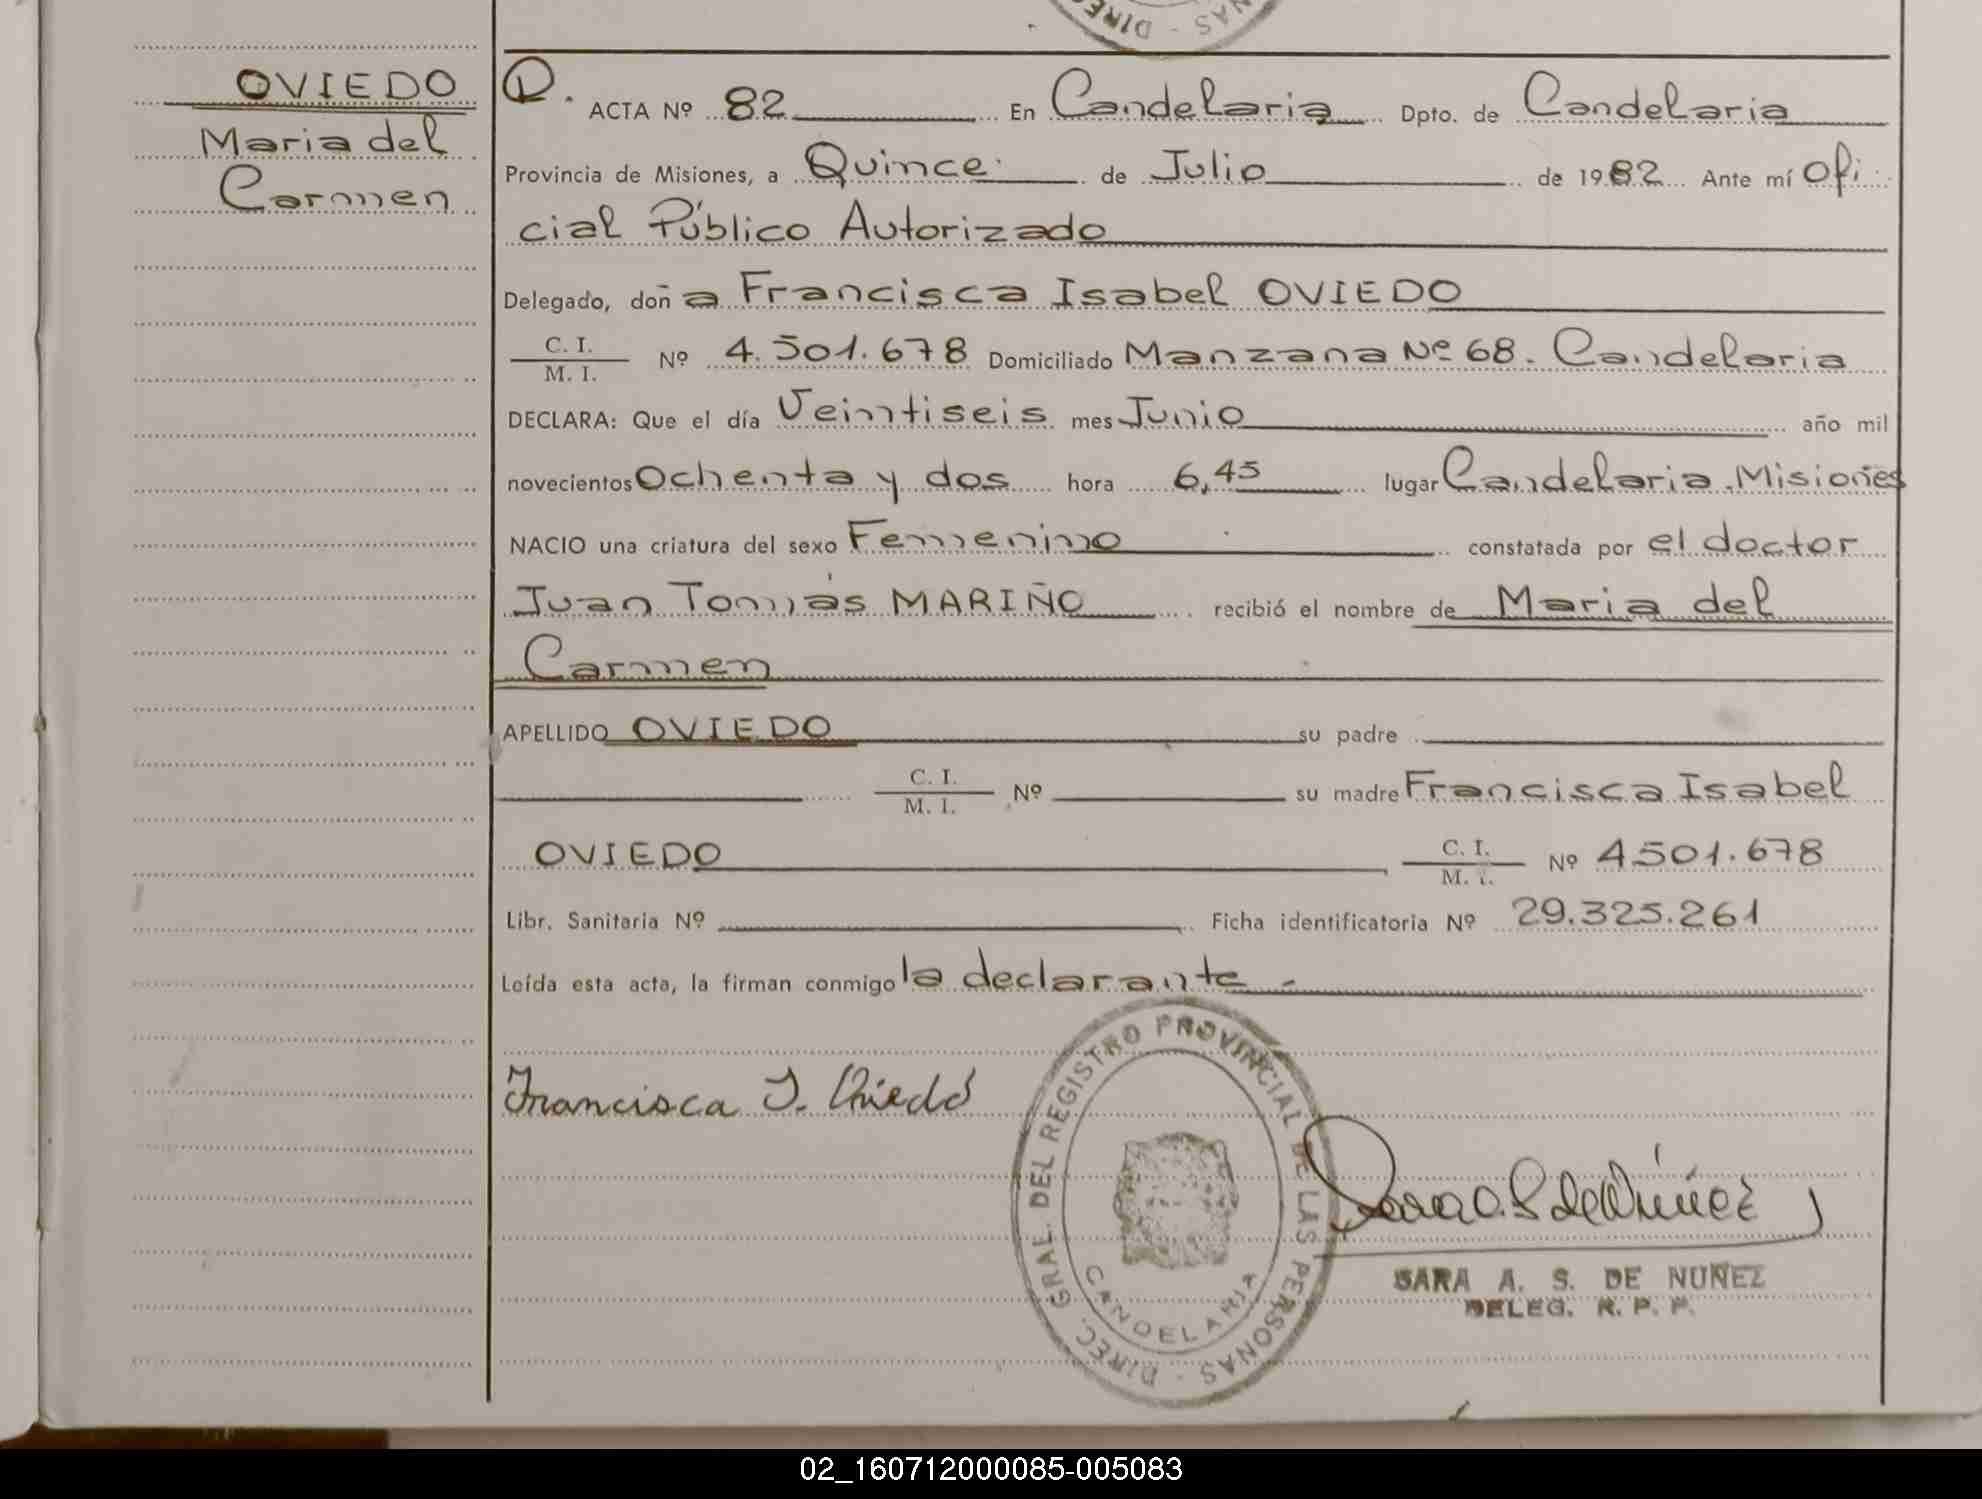 OVIEDO
Maria del
Carmen
D. ACTA Nº 82 En Candelaria Dpto. de Candelaria
Provincia de Misiones, a Quince de Julio de 1982 Ante mí Ofi
cial Público Autorizado
Delegado, doña Francisca Isabel OVIEDO
C. I.
M. I. Nº 4.501.678 Domiciliado Manzana Nº 68. Candelaria
DECLARA: Que el día Veintiseis mes Junio año mil
novecientos Ochenta y dos hora 6,45 lugar Candelaria. Misiones
NACIO una criatura del sexo Femenino constatada por el doctor
Juan Tomás MARIÑO recibió el nombre de Maria del
Carmen
APELLIDO OVIEDO su padre
C. I.
M. I. Nº su madre Francisca Isabel
OVIEDO C. I.
M. I. Nº 4501.678
Libr. Sanitaria Nº Ficha identificatoria Nº 29.325.261
Leída esta acta, la firman conmigo la declarante -
Francisca I. Oviedo
DIREC. GRAL. DEL REGISTRO PROVINCIAL DE LAS PERSONAS -
CANDELARIA
SARA A. S. DE NUÑEZ
DELEG. R. P. P.
02_160712000085-005083